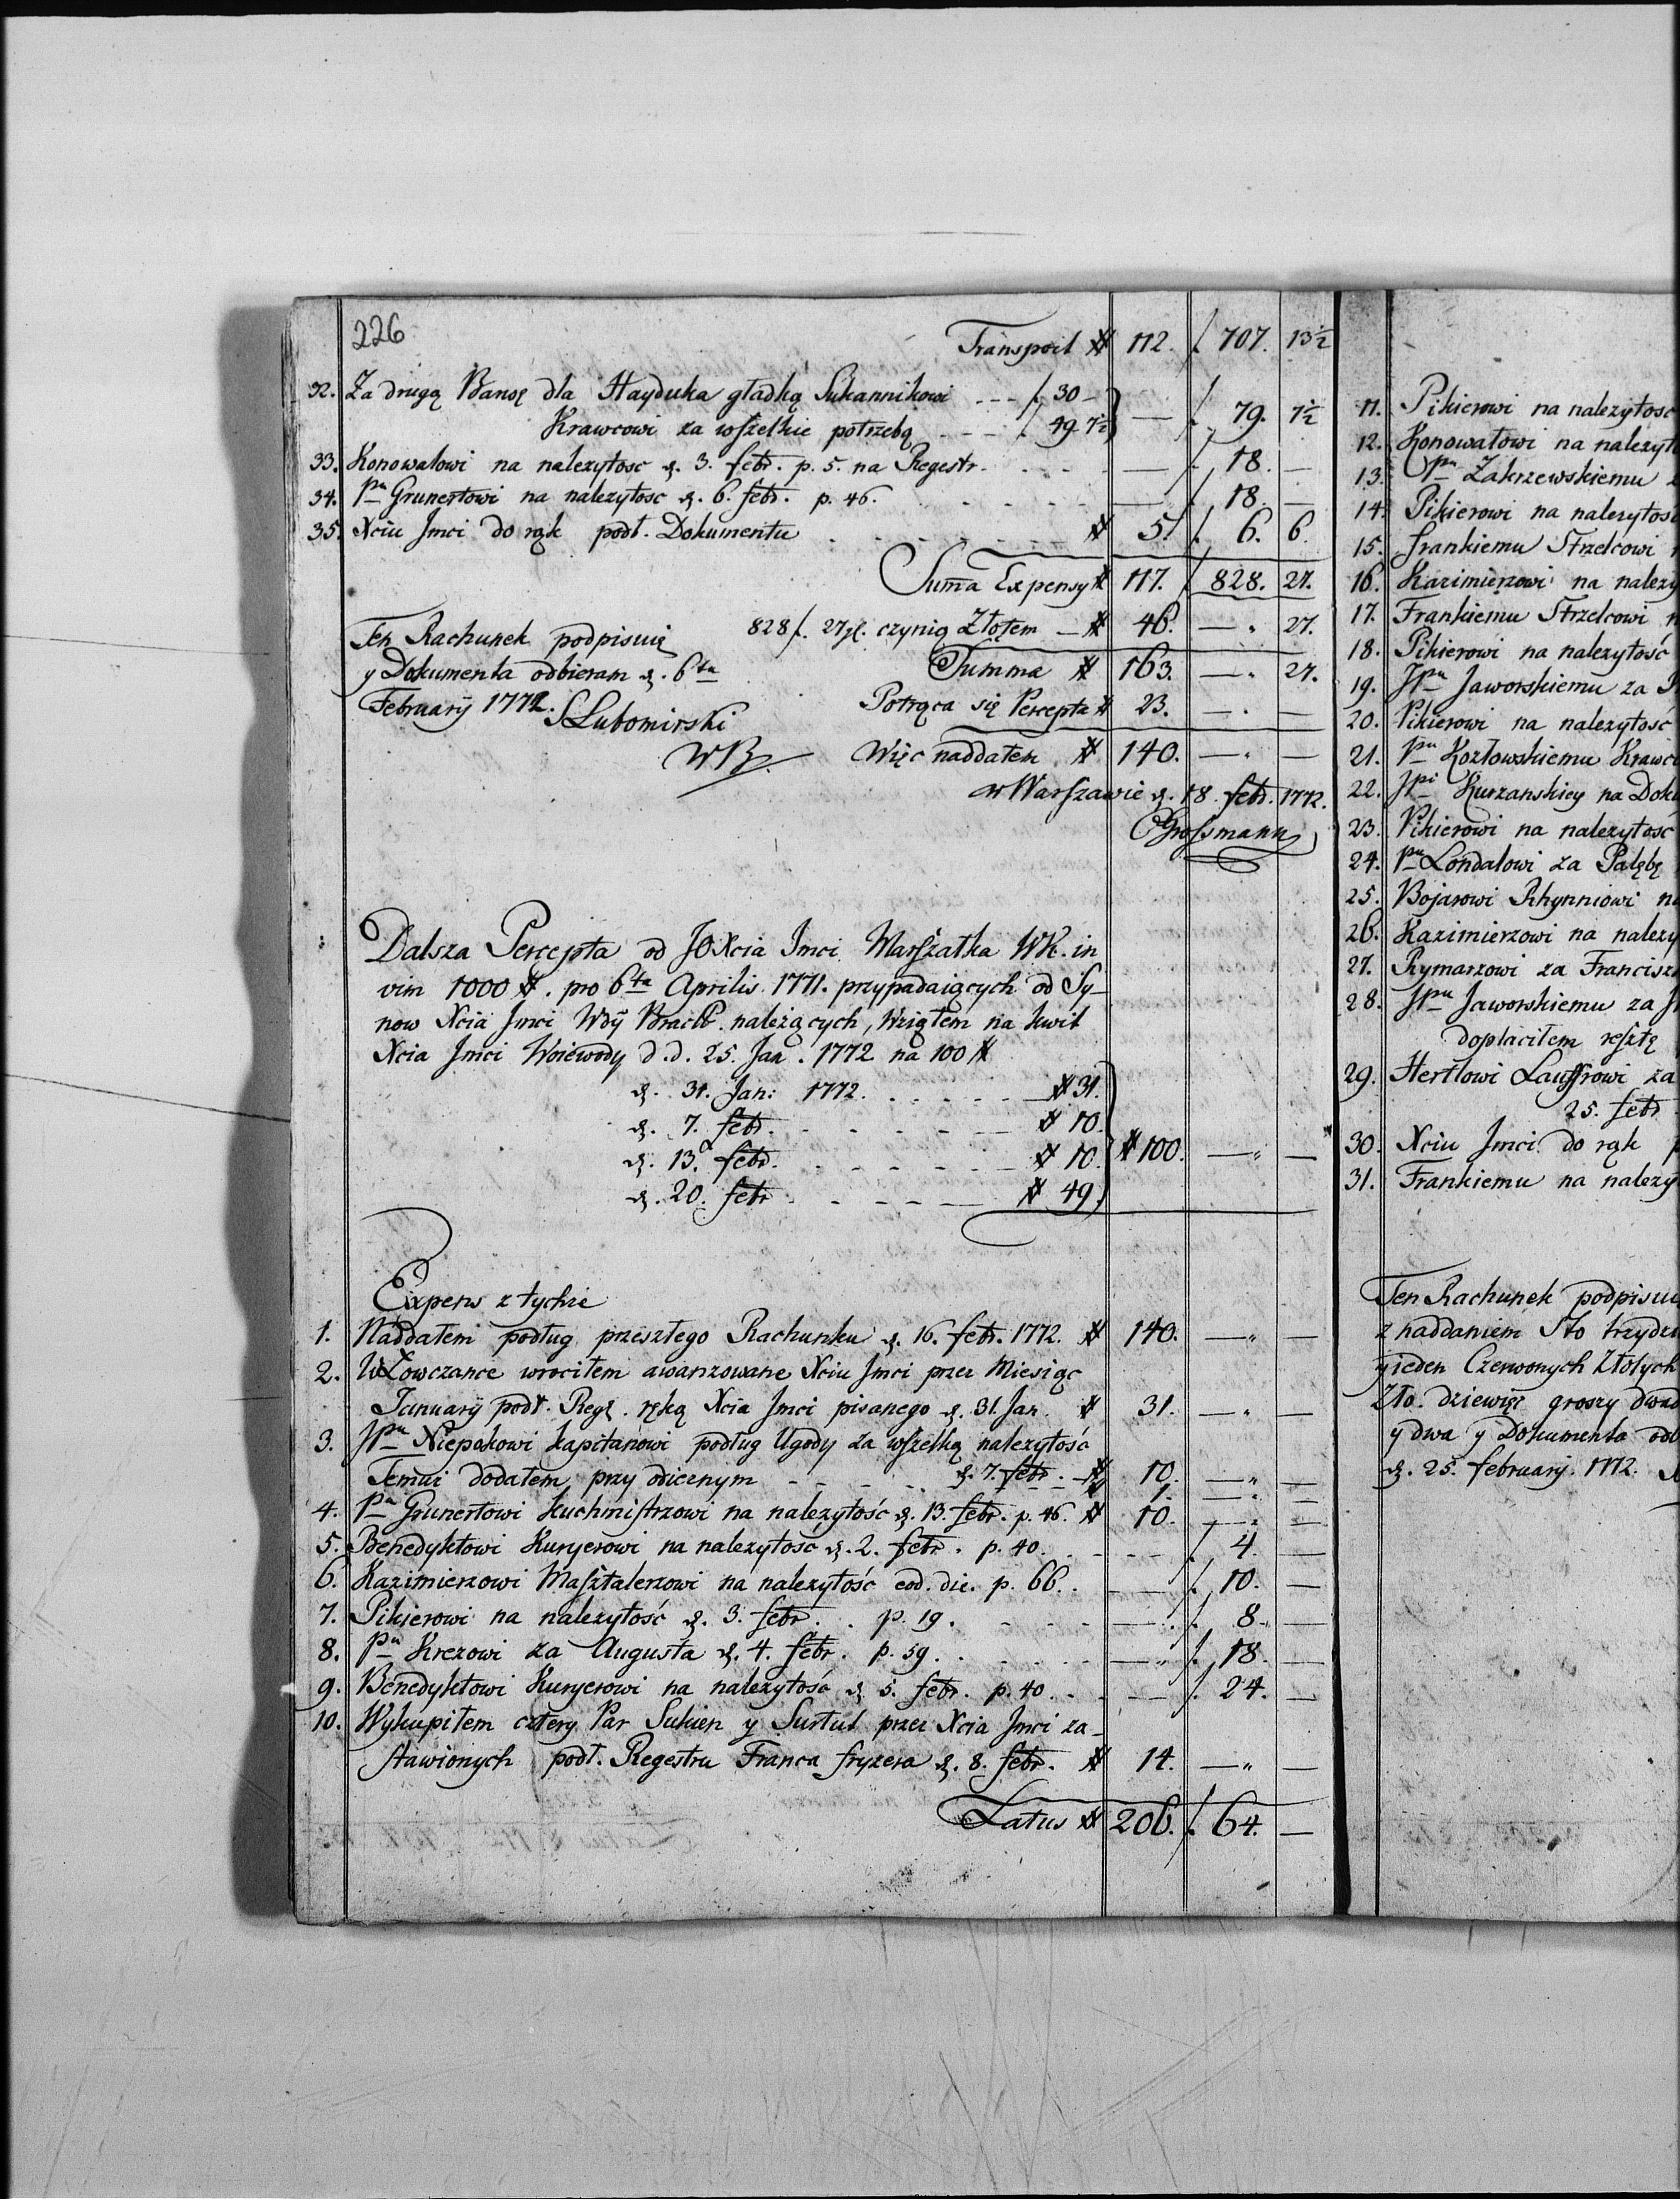 226
Transport # 112. f. 707. 13½
32. Za drugą Barwę dla Hayduka gładką Sukannikowi --- f. 30 –
Krawcowi za wszelkie potrzebą --- f. 49. 7½ — f. 79. 7½
33. Konowałowi na nalezytosc d. 3. febr. p. 5. na Regestr. — f. 18. —
34. Pnu Grunertowi na nalezytosc d. 6. febr. p. 46. — f. 18. —
35. Xciu Jmci do rąk podł. Dokumentu # 5. f. 6. 6.
Suma Expensy # 117. f. 828. 27.
828 f. 27 gl. czynią Złotem # 46. — 27.
Ten Rachunek podpisuię
y Dokumenta odbieram d. 6ta
Februarij 1772. SLubomirski
WB.
Summa # 163. — 27.
Potrąca się Percepta # 23. — —
Więc naddałem # 140. — —
w Warszawie d. 18. febr. 1772.
Grossmann
Dalsza Percepta od JOXcia Jmci Marszałka WK. in
vim 1000 #. pro 6ta Aprilis 1771. przypadaiących od Sy-
now Xcia Jmci Wdy Bracł. należących, wziąłem na kwit
Xcia Jmci Woiewody d.d. 25. Jan. 1772 na 100 #
d. 31. Jan: 1772. # 31.
d. 7. febr. # 10.
d. 13. febr. # 10. # 100. — —
d. 20. febr. # 49.
Expens z tychże
1. Naddałem podług przeszłego Rachunku d. 16. febr. 1772. # 140. — —
2. W Łowczance wrociłem awanzowane Xciu Jmci przez Miesiąc
Januarij podł. Reg. ręką Xcia Jmci pisanego d. 31. Jan. # 31. — —
3. JPnu Niepokowi kapitanowi podług Ugody za wszelką nalezytosc d. 7. febr. # 10. — —
Temuż dodałem przy odicznym # 1. — —
4. Pnu Grunertowi Kuchmistrzowi na nalezytość d. 13. febr. p. 46. # 10. — —
5. Benedyktowi Kuryerowi na nalezytosc d. 2. febr. p. 40. f. 4. —
6. Kazimierzowi Masztalerzowi na nalezytość eod. die. p. 66. — f. 10. —
7. Pikierowi na nalezytość d. 3. febr. p. 19. — f. 8. —
8. Pnu Krezowi za Augusta d. 4. febr. p. 59. — f. 18. —
9. Benedyktowi Kuryerowi na nalezytość d. 5. febr. p. 40. — f. 24. —
10. Wykupiłem cztery Par Sukien y Surtut przez Xcia Jmci za-
stawionych podł. Regestru Franca fryzera d. 8. febr. # 14. — —
Latus # 206. f. 64. —
11. Pikierowi na nalezytosc
12. Konowałowi na nalezyt
13. Pnu Zakrzewskiemu
14. Pikierowi na nalezytosc
15. frankiemu Strzelcowi
16. Kazimierzowi na nalezy
17. Frankiemu Strzelcowi
18. Pikierowi na nalezytość
19. JPnu Jaworskiemu za
20. Pikierowi na nalezytość
21. Pnu Kozłowskiemu Krawc
22. JPi Kurzanskiey na Dok
23. Pikierowi na nalezytość
24. Pnu Londalowi za Palębę
25. Bojarowi Rhynniowi na
26. Kazimierzowi na nalezy
27. Rymarzowi za Francisz
28. JPnu Jaworskiemu za
dopłaciłem resztę
29. Hertlowi Lauffrowi za
25. febr
30. Xciu Jmci do rąk
31. Frankiemu na nalezy
Ten Rachunek podpisu
z naddaniem Sto trzydzi
yieden Czerwonych Złotych
Zło. dziewięć groszy dwad
y dwa y Dokumenta odb
d. 25. februarij. 1772.